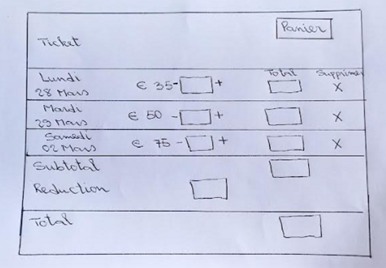 Panier
Ticket
Total Supprimer
Lundi
28 Mars € 35 - + X
Mardi
29 Mars € 50 - + X
Samedi
02 Mars € 75 - + X
Subtotal
Reduction
Total